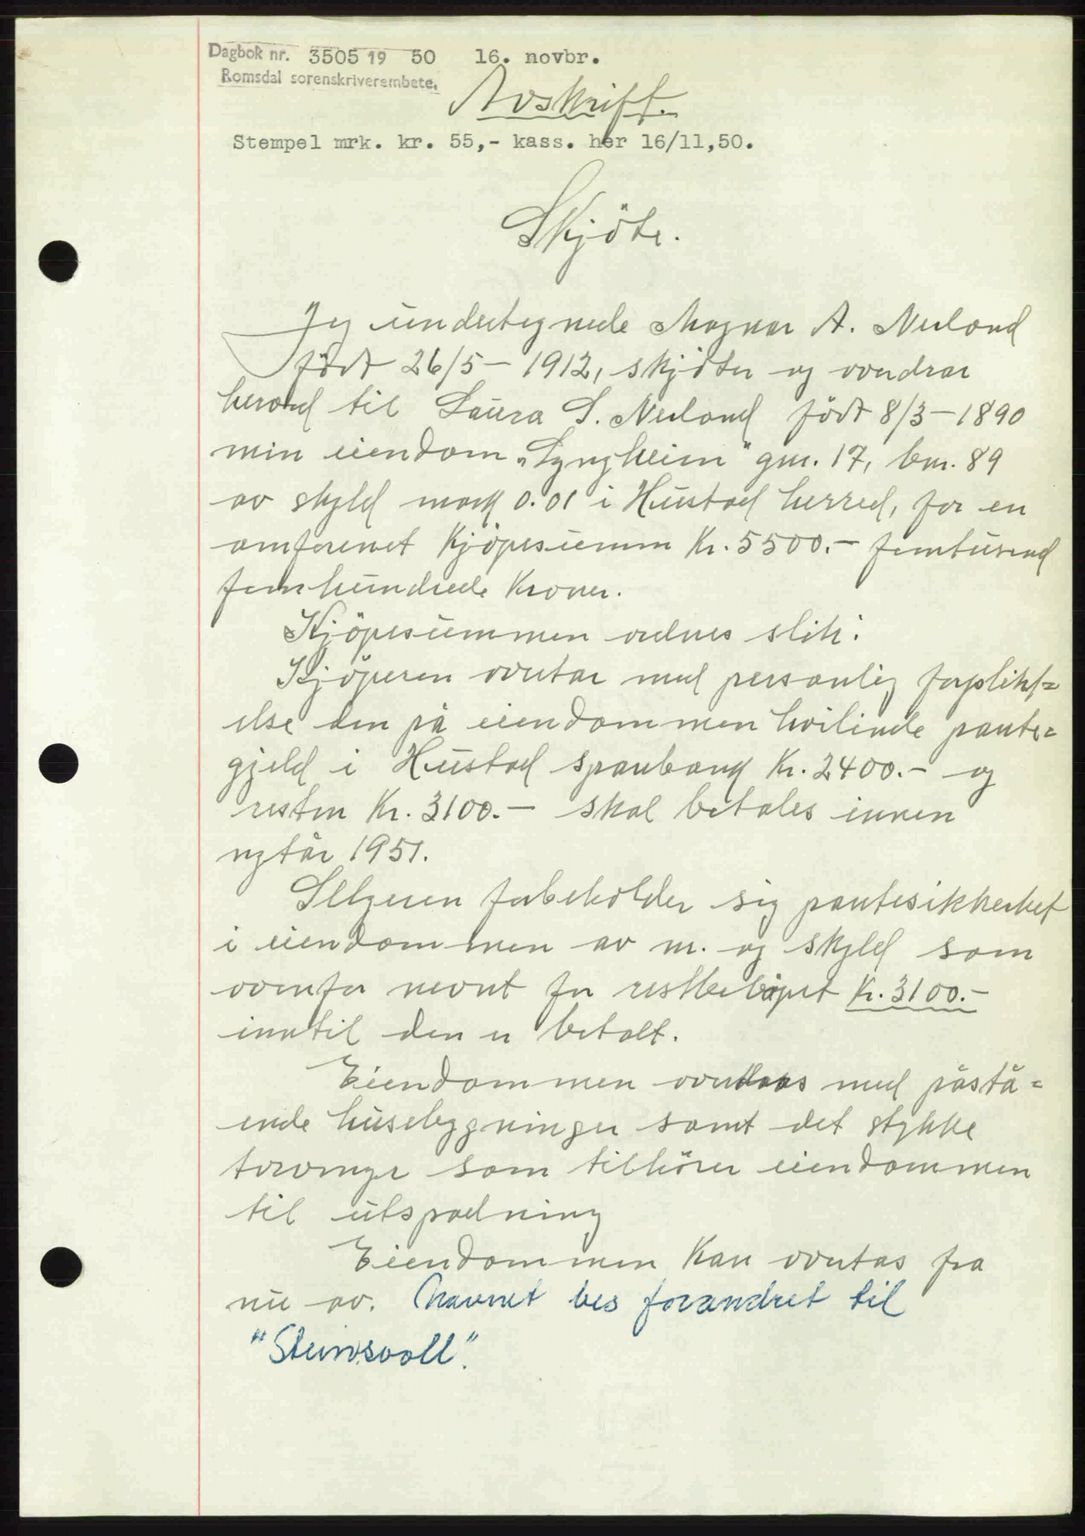 Dagbok nr. 3505 19 50 16. novbr.
Romsdal sorenskriverembete.
Avskrift.
Stempel mrk. kr. 55,- kass. her 16/11,50.
Skjöte.
Jeg undertegnede Magnar A. Neiland
født 26/5 - 1912, skjöter og overdrar
herved til Laura S. Neiland født 8/3 - 1890
min eiendom „Lyngheim" gnr. 17, bnr. 89
av skyld mark 0.01 i Hustad herred, for en
omforenet Kjöpesumm Kr. 5500.- femtusend
femhundrede Kroner.
Kjöpesummen ordnes slik:
Kjöperen overtar med personlig forplikt=
else den på eiendommen hvilende pante=
gjeld i Hustad sparebank Kr. 2400.- og
resten Kr. 3100.- skal betales innen
nytår 1951.
Selgeren forbeholder sig pantesikkerhet
i eiendommen av m. og skyld som
ovenfor nevnt for restbelöpet Kr. 3100.-
inntil den er betalt.
Eiendommen overtas med påstå=
ende husebygninger samt det stykke
torvmyr som tilhörer eiendommen
til utspadning
Eiendommen Kan overtas fra
nu av. Navnet bes forandret til
"Steinsvoll".